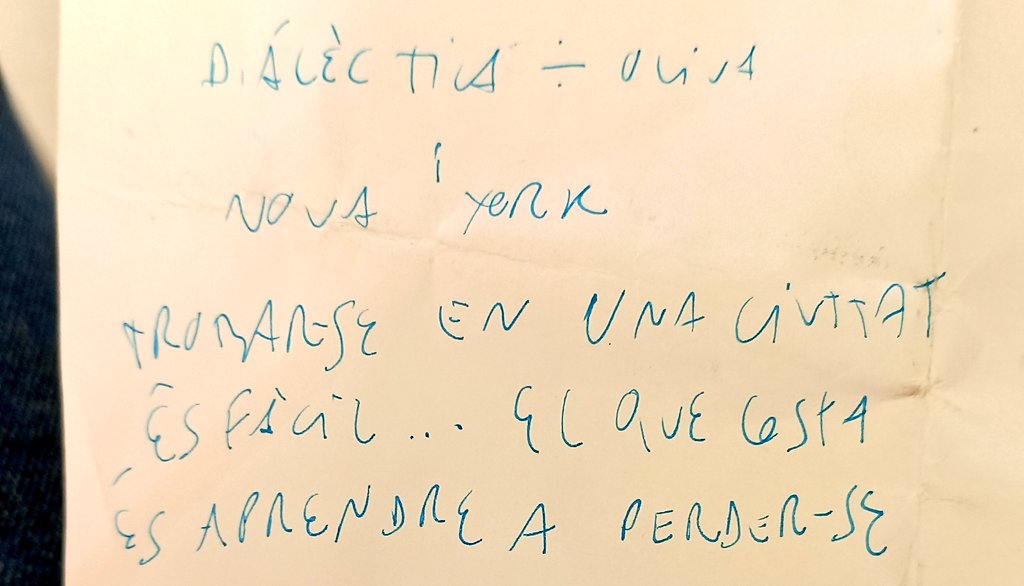 DIÁLÈCTICA ÷ OLIVA
i
NOVA YORK
TROBAR-SE EN UNA CIUTAT
ÉS FÀCIL... EL QUE COSTA
ÉS APRENDRE A PERDER-SE